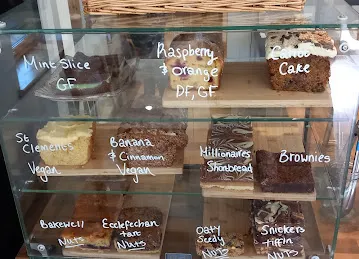 Mint Slice
GF
Raspberry
& Orange
DF, GF
Carrot
Cake
St
Clements
Vegan
Banana
& Cinnamon
Vegan
Millionaires
Shortbread
Brownies
Bakewell
Nuts
Ecclefechan
tart
Nuts
Oaty
Seedy
Nuts
Snickers
tiffin
Nuts